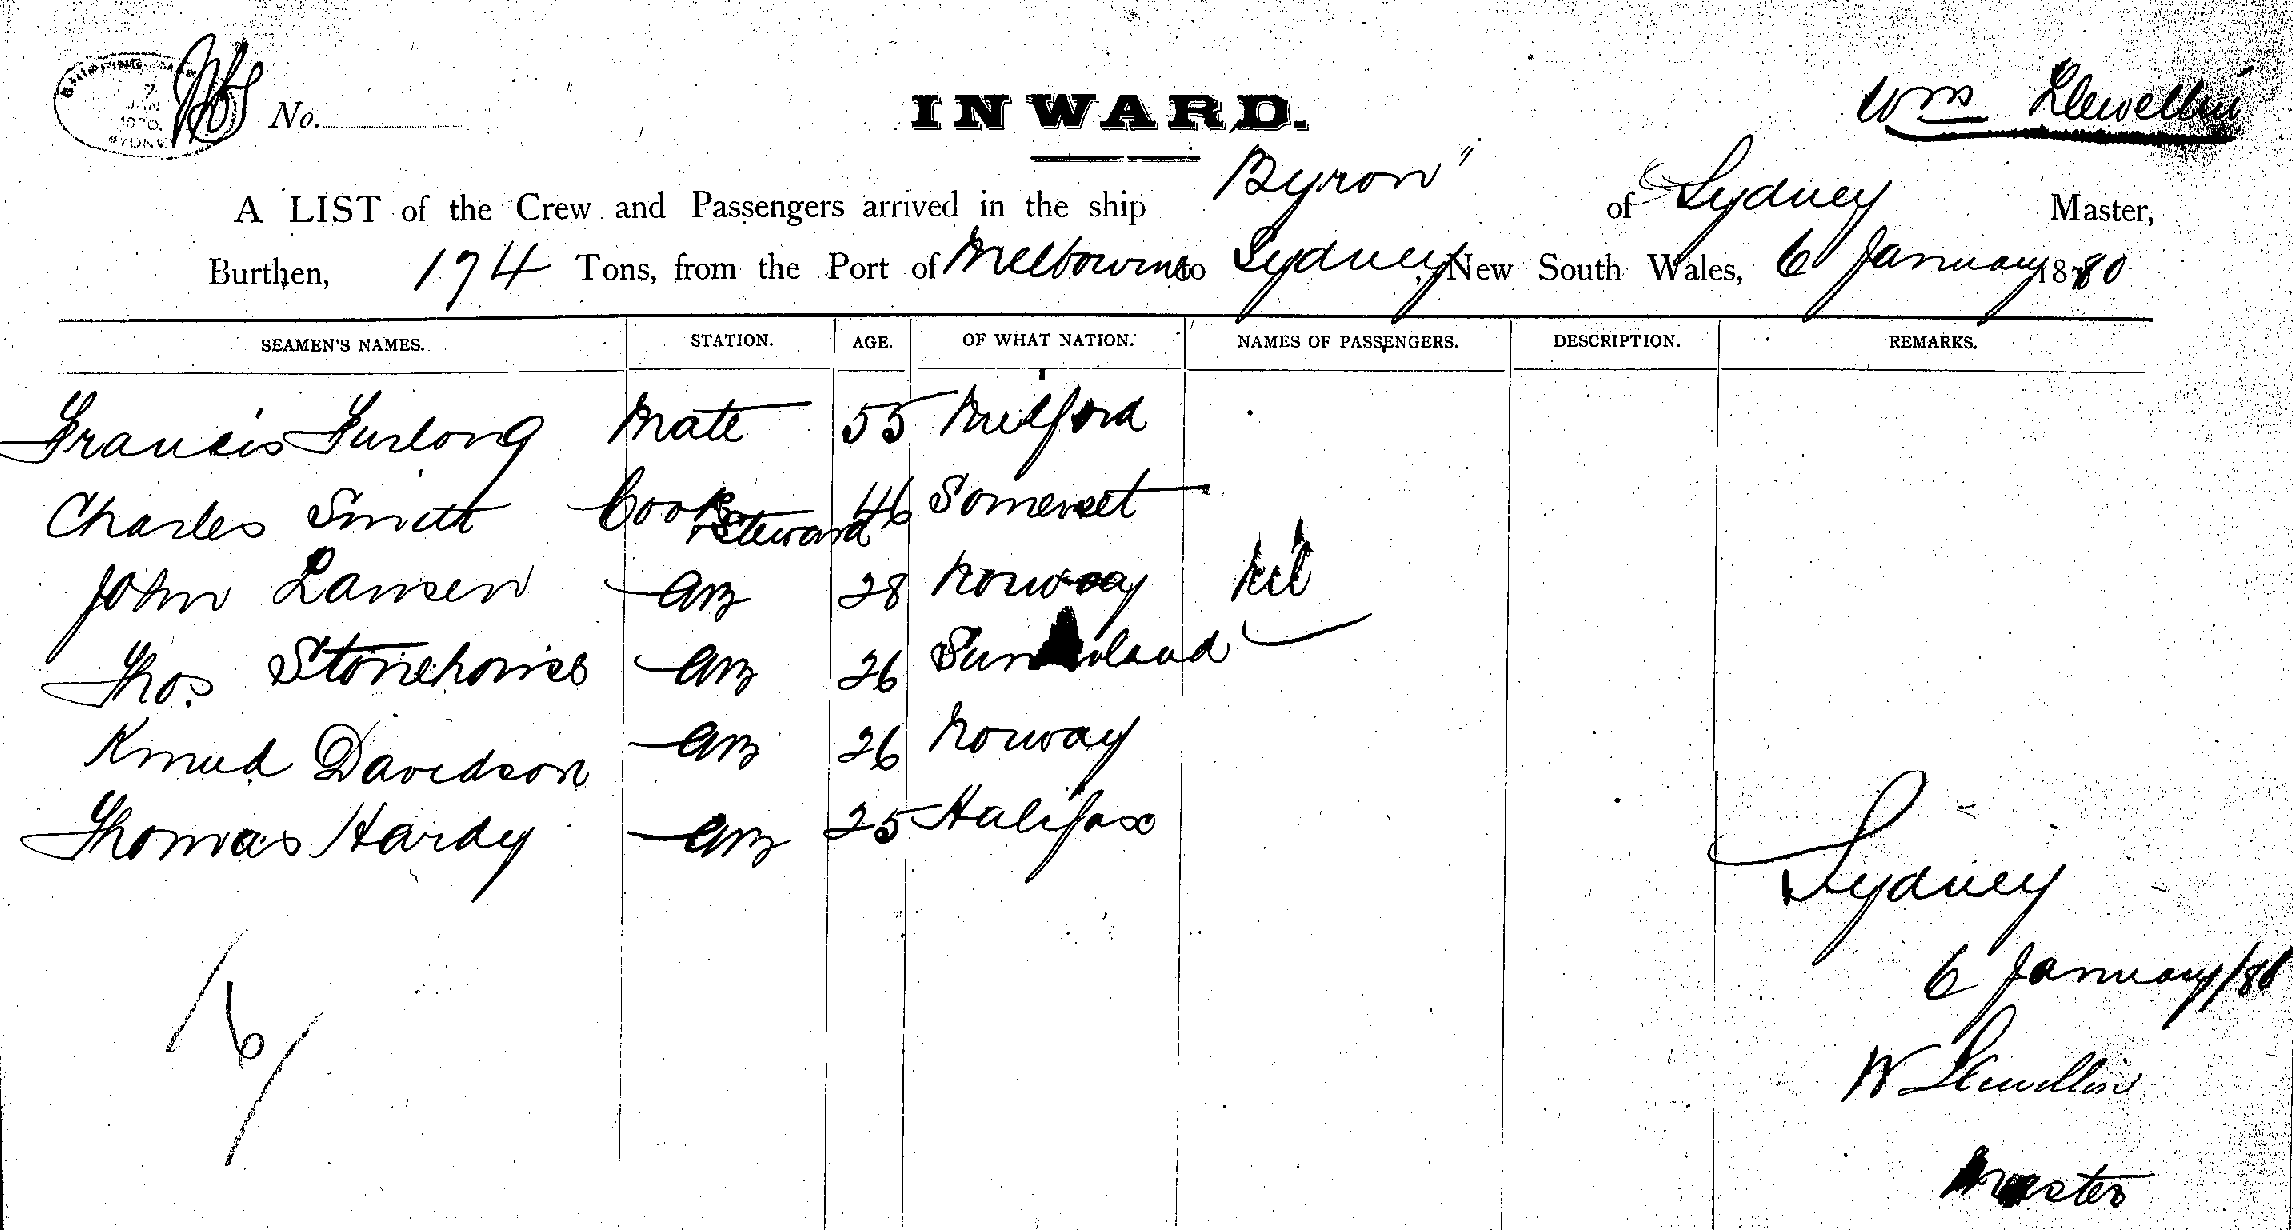 SHIPPING
7
JAN
SYDNEY
No.
INWARD.
Wm Llewellin
A LIST of the Crew and Passengers arrived in the ship Byron" of Sydney Master,
Burthen, 174 Tons, from the Port of Melbourne to Sydney New South Wales, 6 January 1880
SEAMEN'S NAMES. STATION. AGE. OF WHAT NATION. NAMES OF PASSENGERS. DESCRIPTION. REMARKS.
Francis Furlong Mate 55 Milford
Charles Smith Cook & Steward 46 Somerset
John Lansen AB 28 Norway Nil
Thos Stonehouse AB 26 Sunderland
Knud Davidson AB 26 Norway
Thomas Hardy AB 25 Halifax
Sydney
6 January/80
/6/
W Llewellin
Master